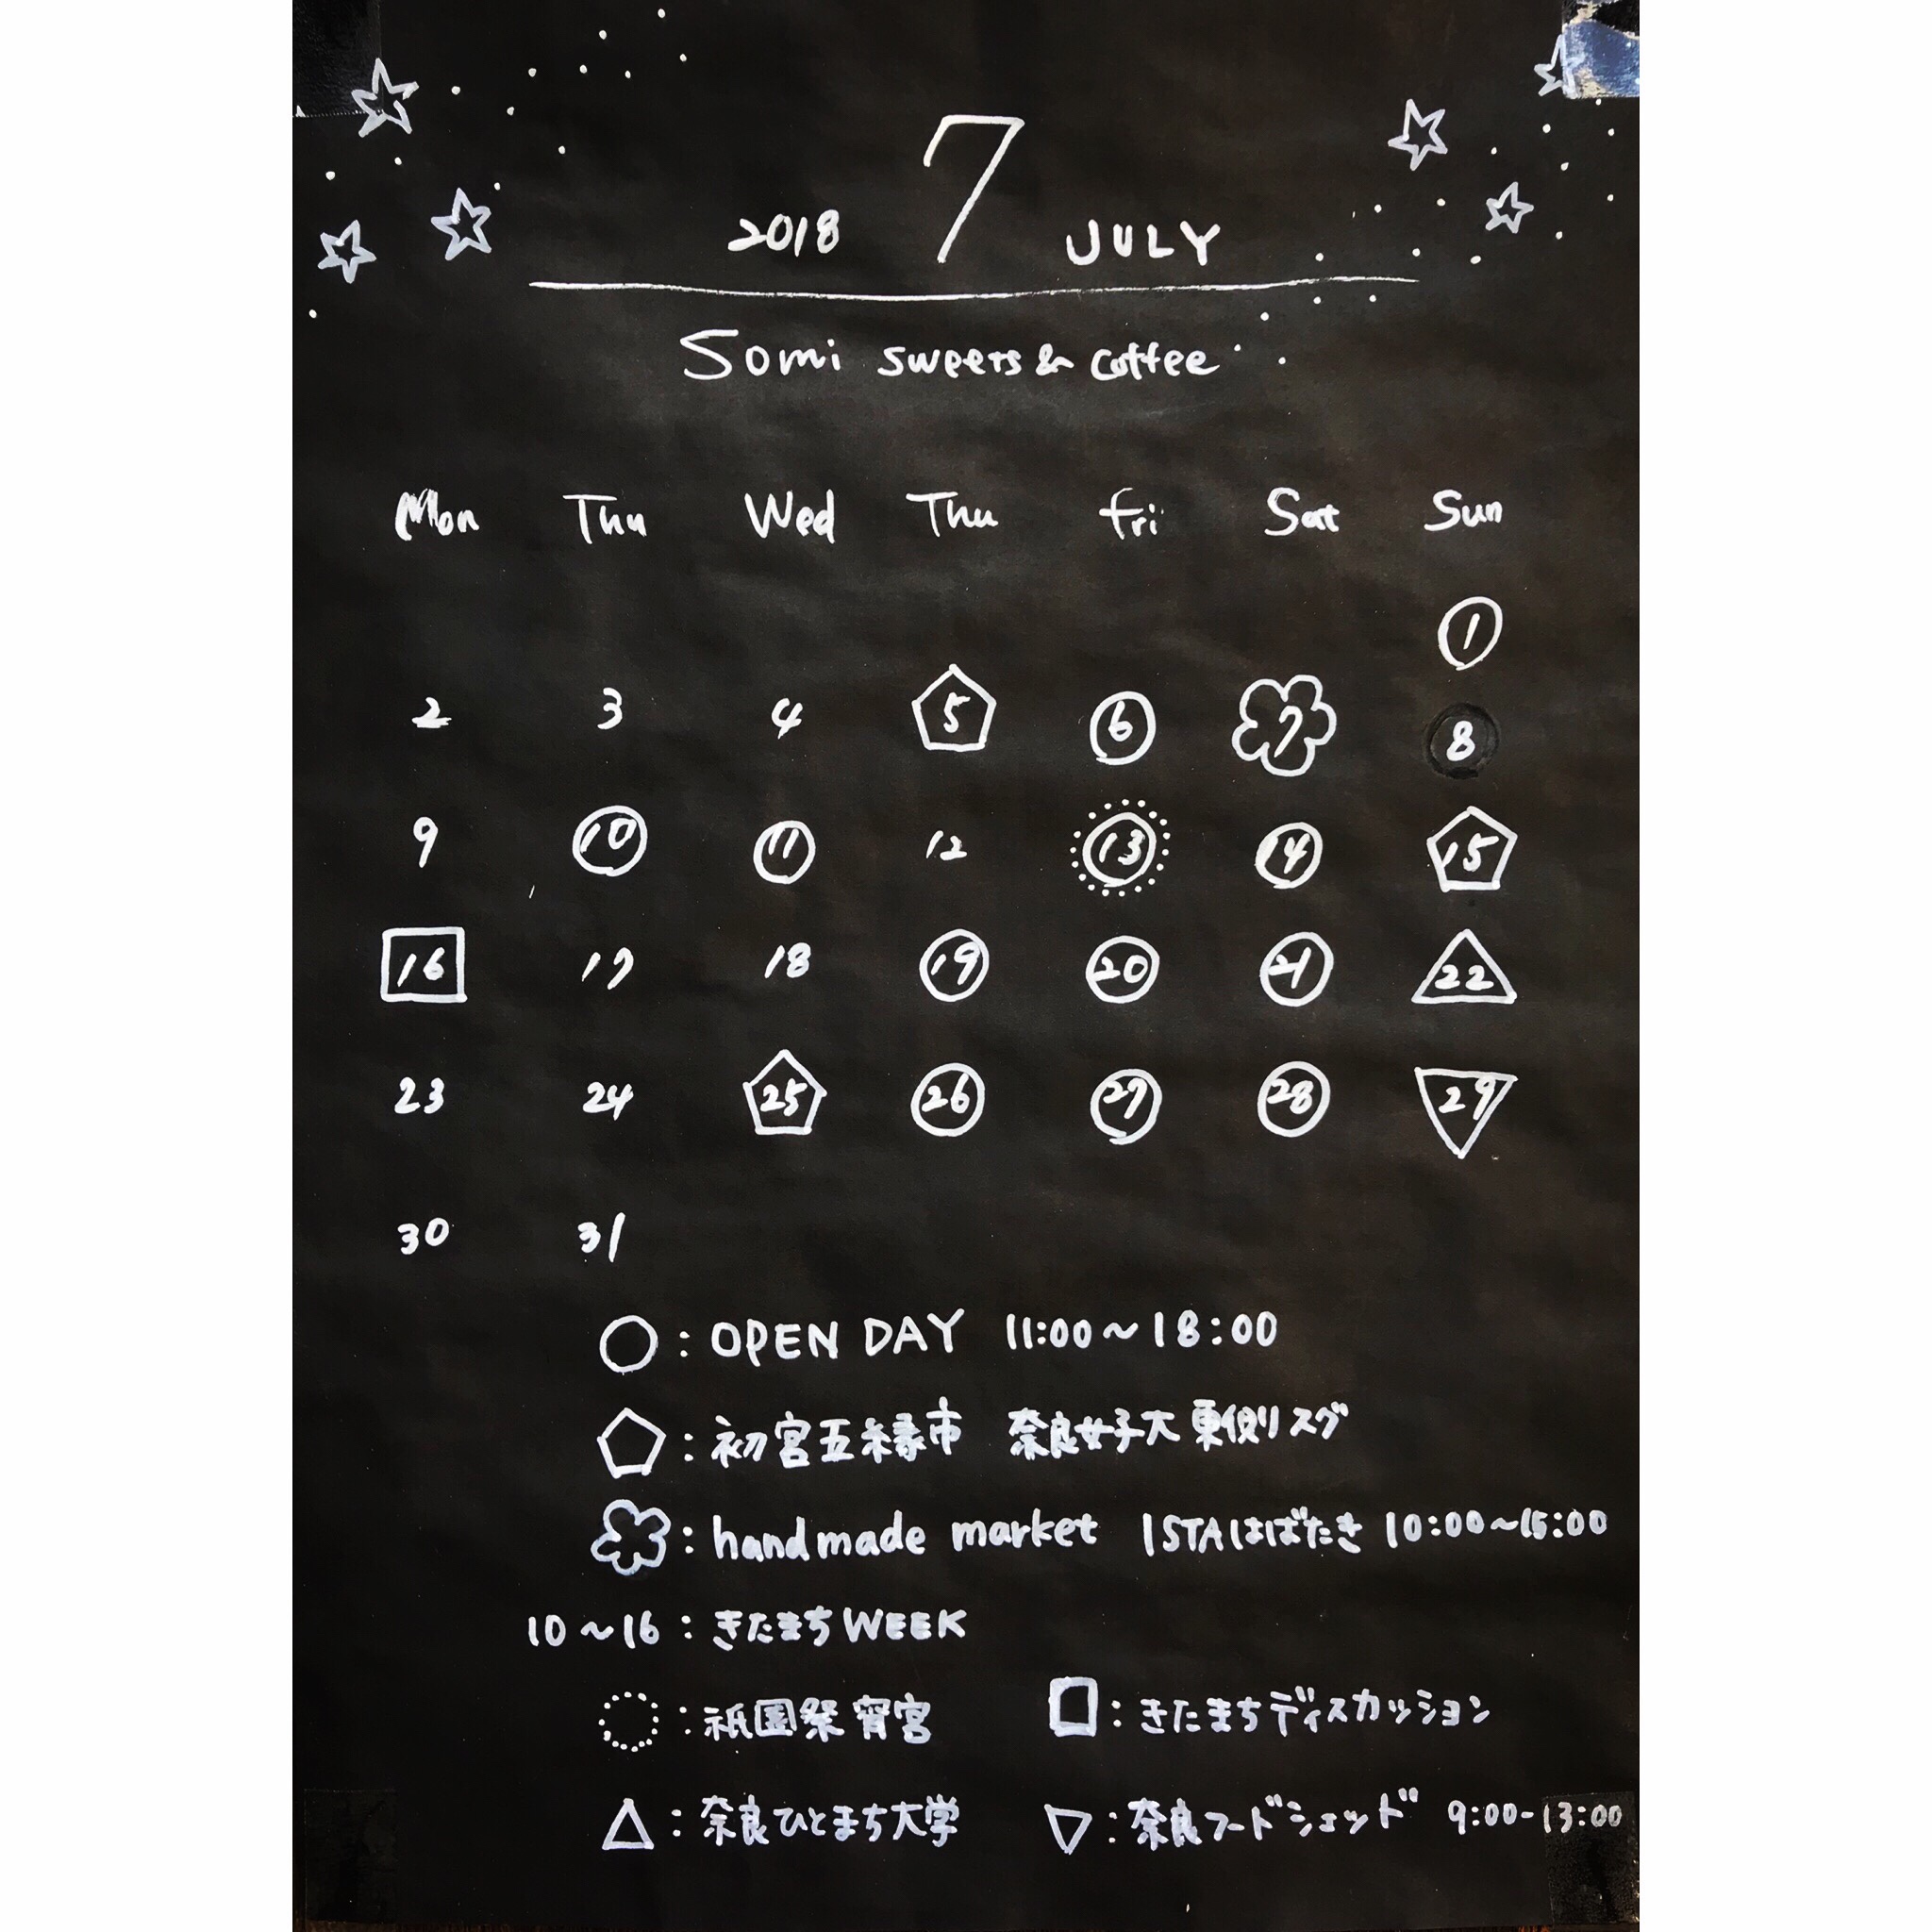 2018 7 JULY
Somi sweets & coffee
Mon Thu Wed Thu Fri Sat Sun
1
2 3 4 5 6 7 8
9 10 11 12 13 14 15
16 17 18 19 20 21 22
23 24 25 26 27 28 29
30 31
○: OPEN DAY 11:00～18:00
: 初宮五縁市 奈良女子大東側スグ
: handmade market ISTAはばたき 10:00～15:00
10～16: きたまちWEEK
: 祇園祭宵宮 □: きたまちディスカッション
△: 奈良ひとまち大学 ▽: 奈良フードシェッド 9:00-13:00